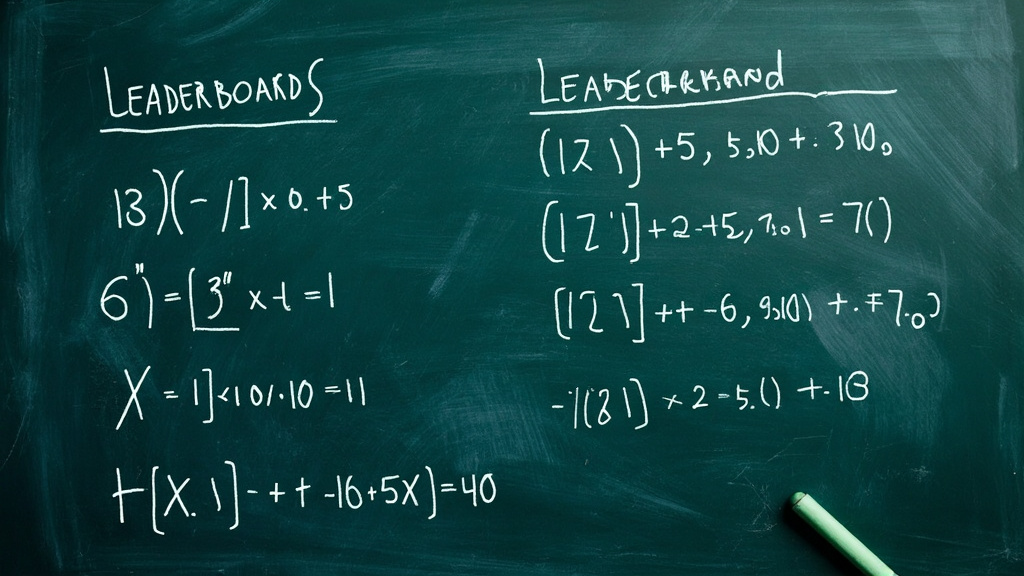 LEADERBOARDS
13)(-/] × 0.+5
6") = [3" × -1 = 1
X = 1]<101·10 = 11
+[X. 1] - + + -16+5X) = 40
(12 1) +5, 5,10 +: 310.
(12 1)] +2 +5, 7.01 = 7()
[12 1] ++ -6, 9,10)
-1(8 1]) × 2 - 5.() +-13